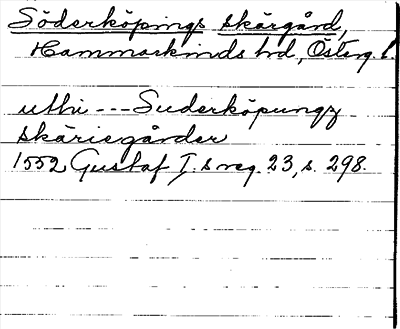 Söderköpings skärgård,
Hammarkinds hd, Österg. l.
uthi --- Suderköpungz
skäriegårder
1552 Gustaf I. s reg. 23, s. 298.